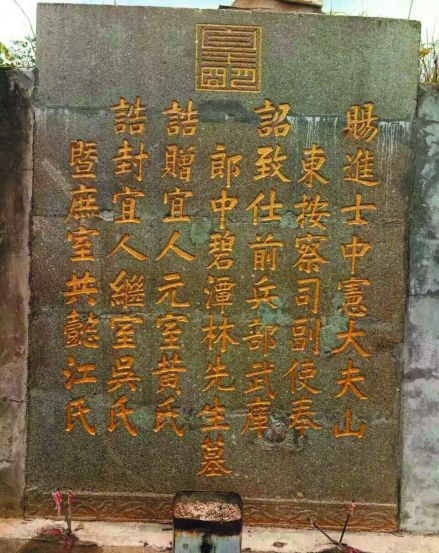 皇明
賜進士中憲大夫山
東按察司副使奉
詔致仕前兵部武庫
郎中碧潭林先生墓
誥贈宜人元室黃氏
誥封宜人繼室吳氏
暨庶室共懿江氏